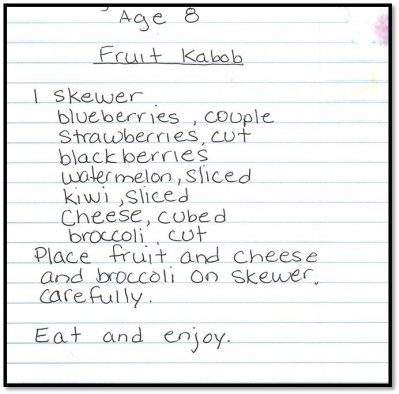 Age 8
Fruit Kabob
1 skewer
blueberries, couple
strawberries, cut
blackberries
watermelon, sliced
kiwi, sliced
Cheese, cubed
broccoli, cut
Place fruit and cheese
and broccoli on skewer.
carefully.
Eat and enjoy.